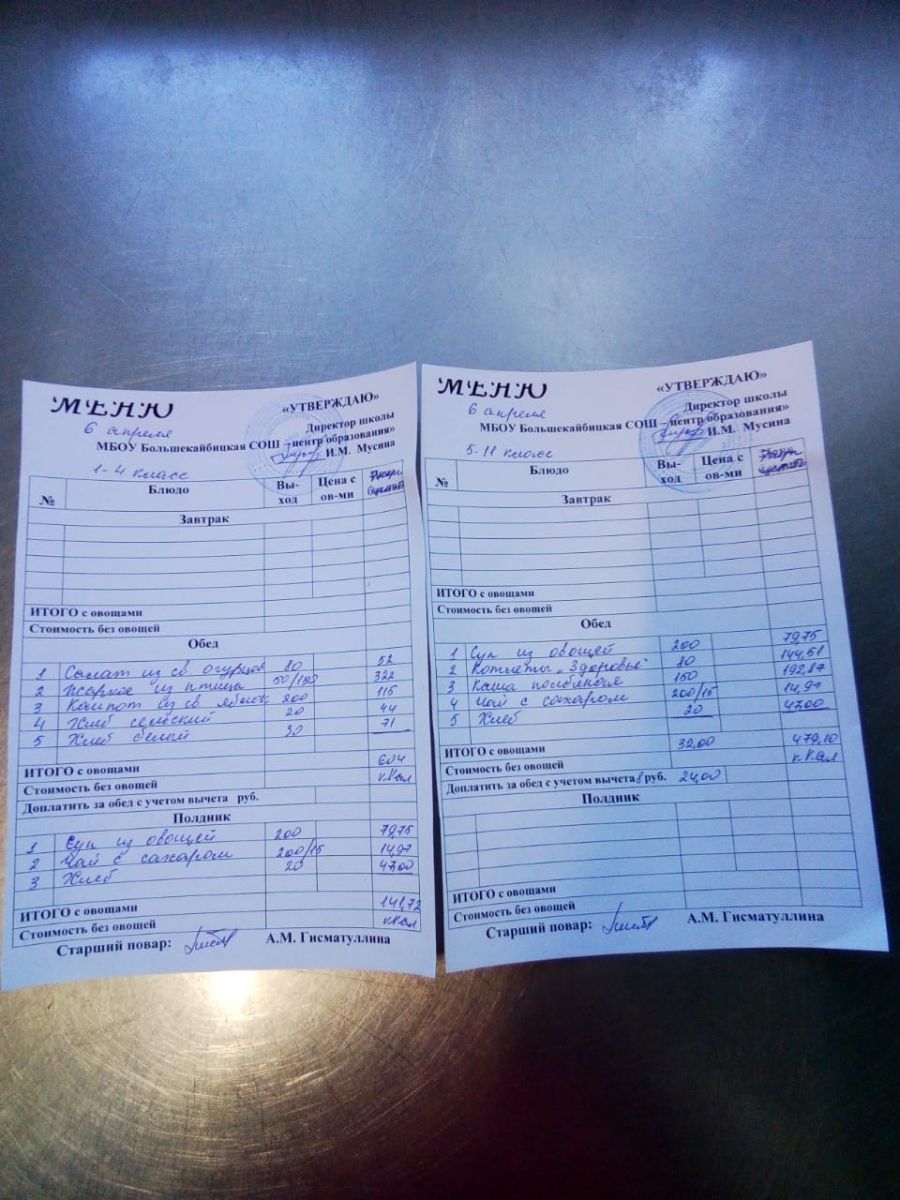 МЕНЮ
«УТВЕРЖДАЮ»
6 апреля
Директор школы
МБОУ Большекайбицкая СОШ – центр образования»
И.М. Мусина
1-4 класс
№ Блюдо Вы-ход Цена с ов-ми
Завтрак
ИТОГО с овощами
Стоимость без овощей
Обед
1 Салат из св огурцов 80 52
2 Жаркое из птицы 50/150 322
3 Компот из св яблок 200 115
4 Хлеб сельский 20 44
5 Хлеб белый 30 71
ИТОГО с овощами 604
Стоимость без овощей кКал
Доплатить за обед с учетом вычета руб.
Полдник
1 Суп из овощей 200 79,75
2 Чай с сахаром 200/15 14,97
3 Хлеб 20 47,00
ИТОГО с овощами 141,72
Стоимость без овощей кКал
Старший повар: А.М. Гисматуллина
МЕНЮ
«УТВЕРЖДАЮ»
6 апреля
Директор школы
МБОУ Большекайбицкая СОШ – центр образования»
И.М. Мусина
5-11 класс
№ Блюдо Вы-ход Цена с ов-ми
Завтрак
ИТОГО с овощами
Стоимость без овощей
Обед
1 Суп из овощей 200 79,75
2 Котлеты „Здоровье" 80 144,51
3 Каша полбяная 150 192,87
4 Чай с сахаром 200/15 14,97
5 Хлеб 20 47,00
ИТОГО с овощами 32,00 479,10
Стоимость без овощей кКал
Доплатить за обед с учетом вычета 8 руб. 24,00
Полдник
ИТОГО с овощами
Стоимость без овощей
Старший повар: А.М. Гисматуллина